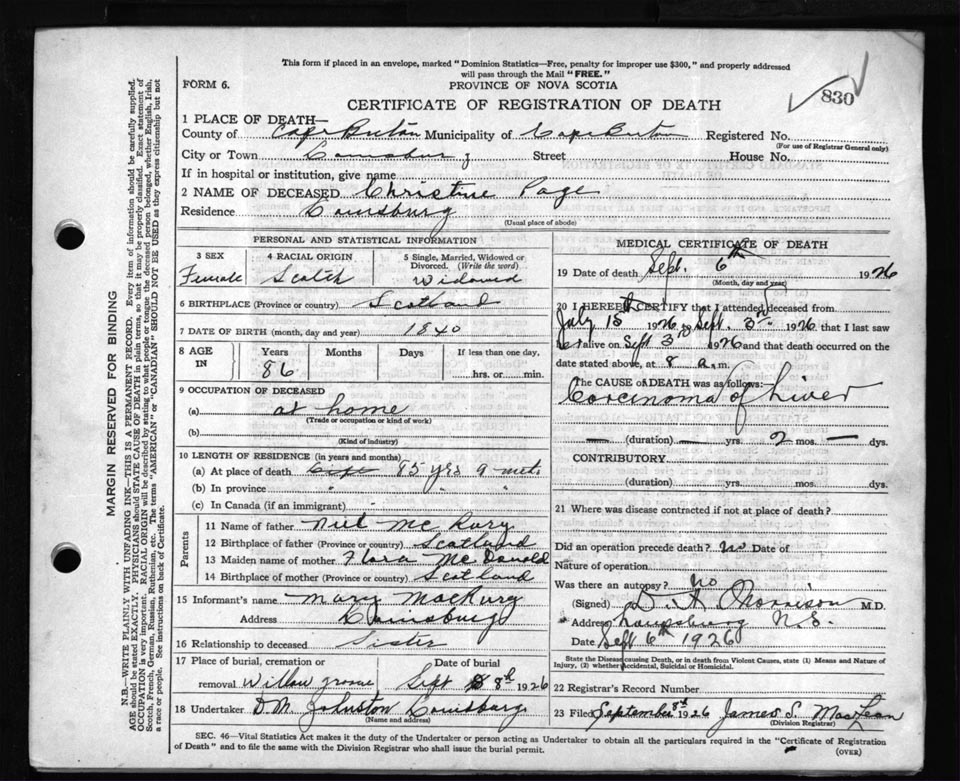 This form if placed in an envelope, marked "Dominion Statistics—Free, penalty for improper use $300," and properly addressed
will pass through the Mail "FREE."
FORM 6.
PROVINCE OF NOVA SCOTIA
830
CERTIFICATE OF REGISTRATION OF DEATH
1 PLACE OF DEATH—
County of Cape Breton Municipality of Cape Breton Registered No.
(For use of Registrar General only)
City or Town Louisburg Street House No.
If in hospital or institution, give name
2 NAME OF DECEASED Christine Page
Residence Louisburg
(Usual place of abode)
PERSONAL AND STATISTICAL INFORMATION
3 SEX 4 RACIAL ORIGIN 5 Single, Married, Widowed or
Divorced. (Write the word)
Female Scotch Widowed
6 BIRTHPLACE (Province or country) Scotland
7 DATE OF BIRTH (month, day and year) 1840
8 AGE IN Years Months Days If less than one day,
86 hrs. or min.
9 OCCUPATION OF DECEASED
(a) at home
(Trade or occupation or kind of work)
(b)
(Kind of industry)
10 LENGTH OF RESIDENCE (in years and months)
(a) At place of death 85 yrs 9
(b) In province " " "
(c) In Canada (if an immigrant)
Parents
11 Name of father Neil McRury
12 Birthplace of father (Province or country) Scotland
13 Maiden name of mother Flora McDonald
14 Birthplace of mother (Province or country) Scotland
15 Informant's name Mary MacRury
Address Louisburg
16 Relationship to deceased Sister
17 Place of burial, cremation or Date of burial
removal Willow grove Sept 8th 1926
18 Undertaker D.M. Johnston Louisburg
(Name and address)
MEDICAL CERTIFICATE OF DEATH
19 Date of death Sept. 6th 1926
(Month, day and year)
20 I HEREBY CERTIFY that I attended deceased from
July 15th 1926 to Sept. 3rd 1926 that I last saw
her alive on Sept 3rd 1926 and that death occurred on the
date stated above, at 8 a.m.
The CAUSE OF DEATH was as follows:
Carcinoma of Liver
— (duration) — yrs. 2 mos. — dys.
CONTRIBUTORY
(duration) yrs. mos. dys.
21 Where was disease contracted if not at place of death?
Did an operation precede death? no Date of
Nature of operation
Was there an autopsy? no
(Signed) D. A. Morrison M.D.
Address Louisburg N.S.
Date Sept 6th 1926
State the Disease causing Death, or in death from Violent Causes, state (1) Means and Nature of
Injury, (2) whether Accidental, Suicidal or Homicidal.
22 Registrar's Record Number
23 Filed September 8th 1926 James S. MacLean
(Division Registrar)
SEC. 46—Vital Statistics Act makes it the duty of the Undertaker or person acting as Undertaker to obtain all the particulars required in the "Certificate of Registration
of Death" and to file the same with the Division Registrar who shall issue the burial permit.
(OVER)
MARGIN RESERVED FOR BINDING
N.B.—WRITE PLAINLY WITH UNFADING INK—THIS IS A PERMANENT RECORD. Every item of information should be carefully supplied.
AGE should be stated EXACTLY. PHYSICIANS should STATE CAUSE OF DEATH in plain terms, so that it may be properly classified. Exact statement of
OCCUPATION is very important. RACIAL ORIGIN will be described by stating to what people or tongue the deceased person belonged, whether English, Irish,
Scotch, French, German, Russian, Ruthenian, etc. The terms "AMERICAN" or "CANADIAN" SHOULD NOT BE USED as they express citizenship but not
a race or people. See instructions on back of Certificate.